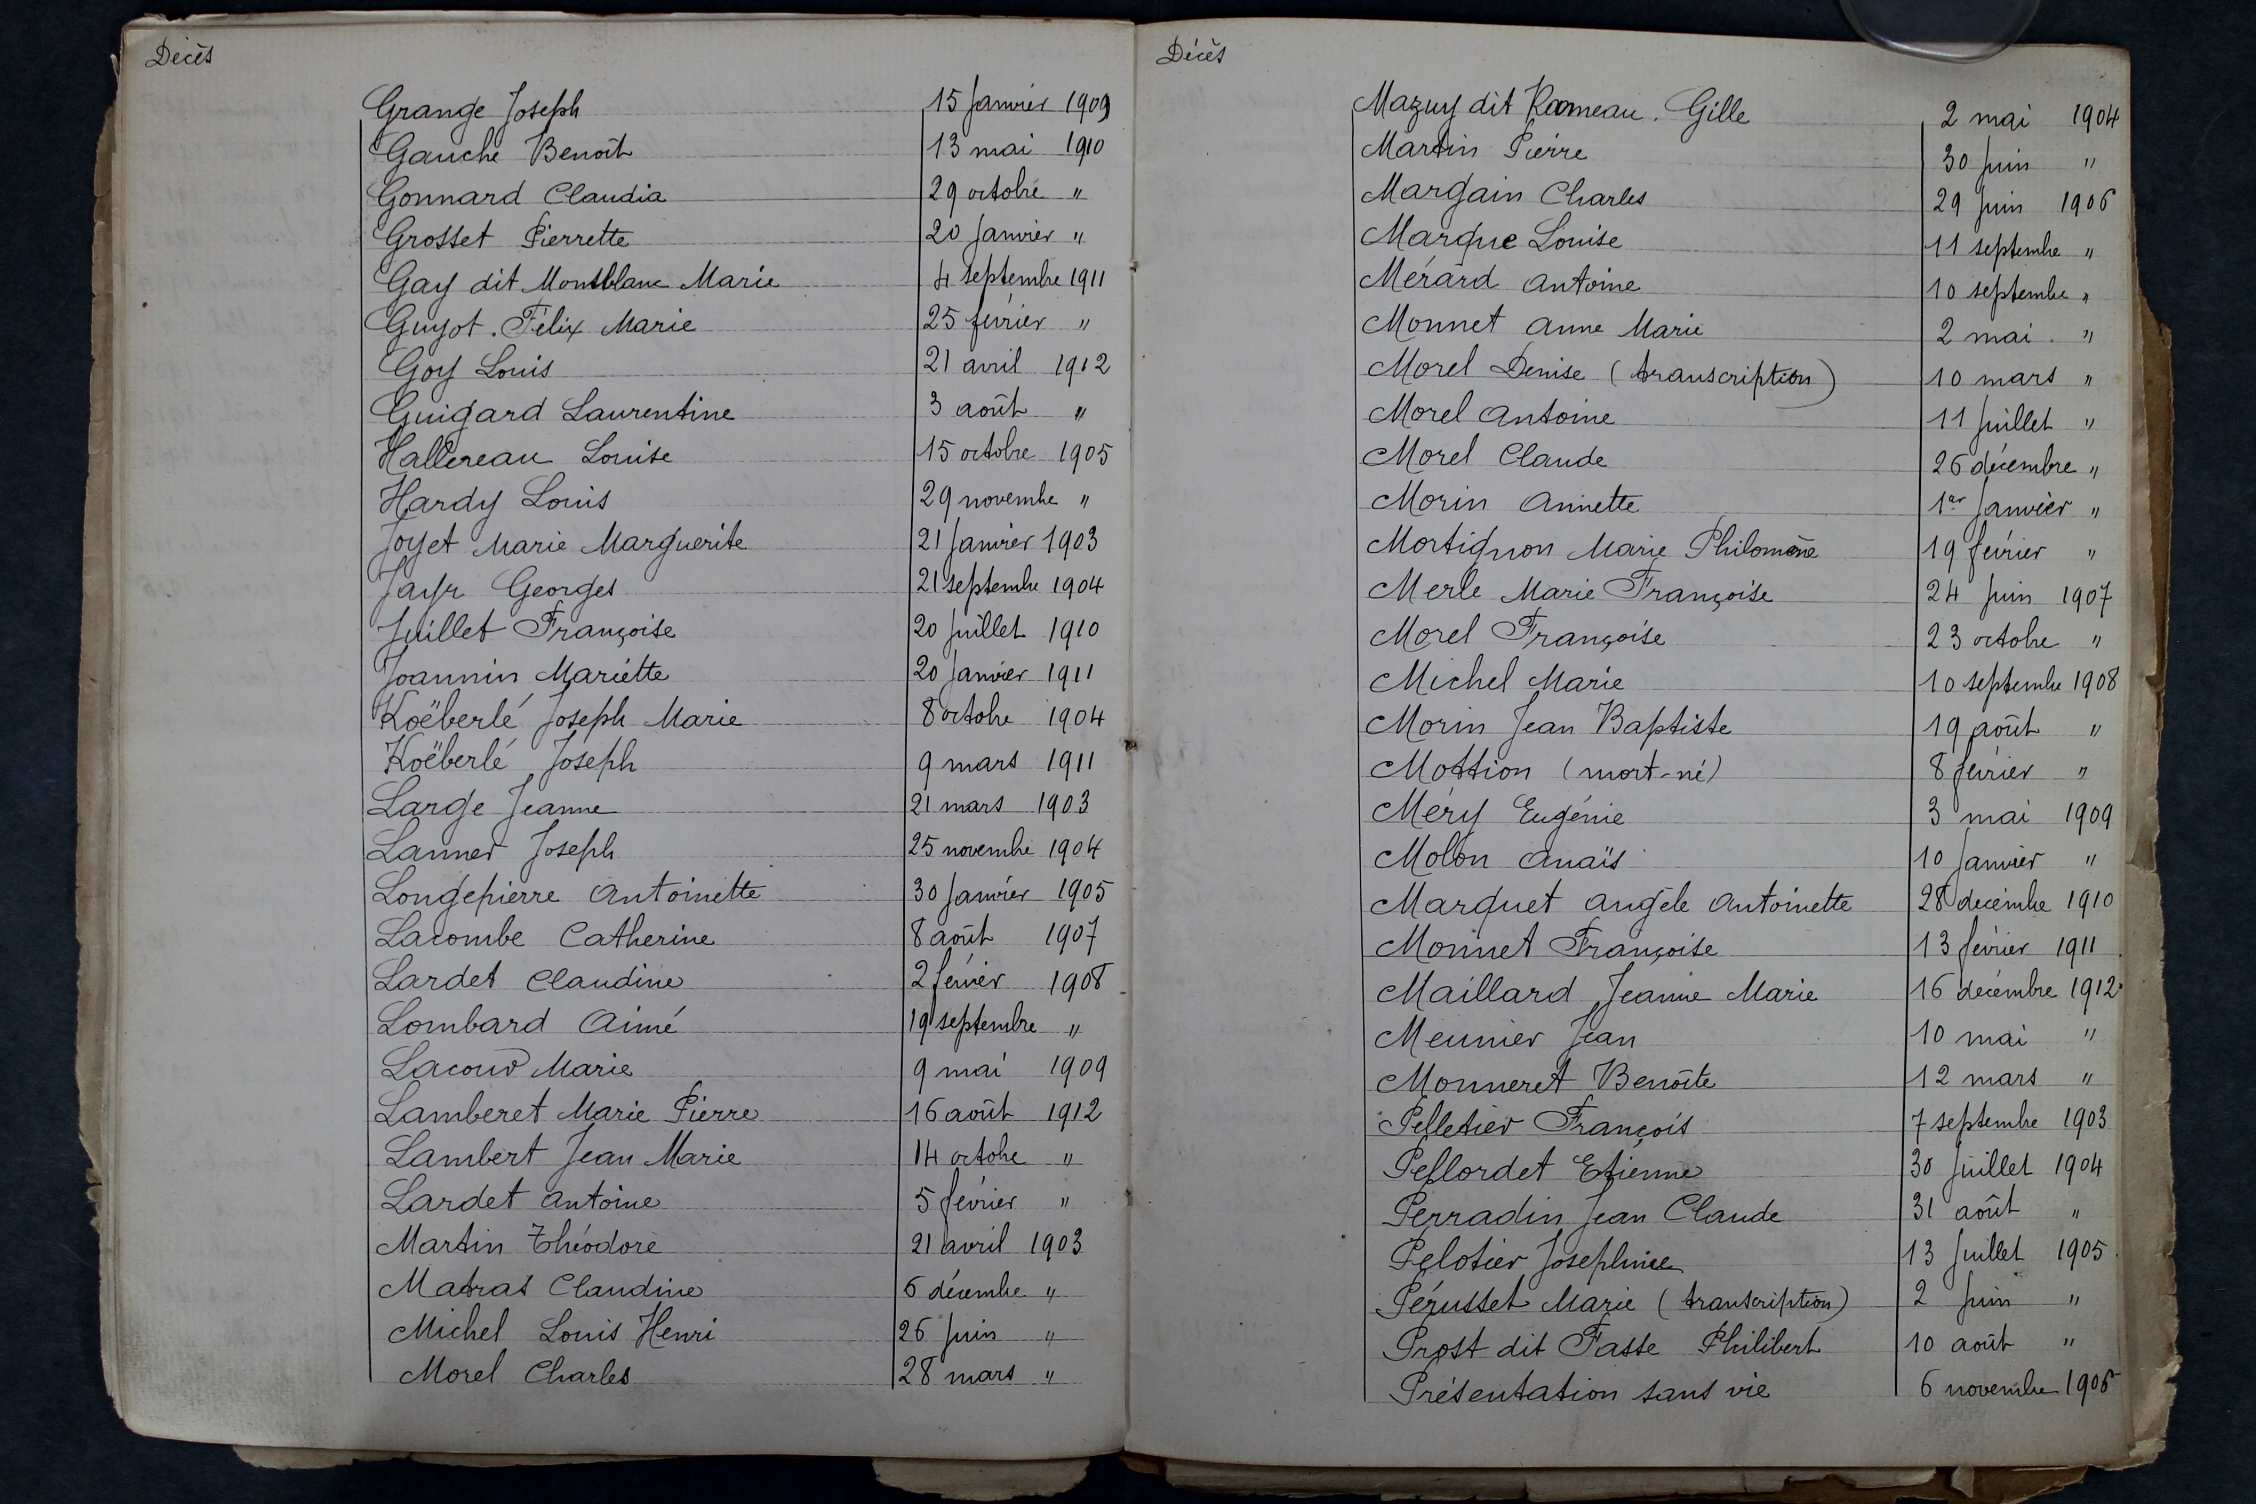 Décès
Grange Joseph 15 Janvier 1909
Gauche Benoît 13 mai 1910
Gonnard Claudia 29 octobre "
Grosset Pierrette 20 Janvier "
Gay dit Montblanc Marie 4 septembre 1911
Guyot. Félix Marie 25 février "
Goy Louis 21 avril 1912
Guigard Laurentine 3 août "
Hallereau Louise 15 octobre 1905
Hardy Louis 29 novembre "
Joyet Marie Marguerite 21 Janvier 1903
Jayr Georges 21 septembre 1904
Juillet Françoise 20 Juillet 1910
Joannin Mariette 20 Janvier 1911
Koëberlé Joseph Marie 8 octobre 1904
Koëberlé Joseph 9 mars 1911
Large Jeanne 21 mars 1903
Lanner Joseph 25 novembre 1904
Longepierre Antoinette 30 Janvier 1905
Lacombe Catherine 8 août 1907
Lardet Claudine 2 février 1908
Lombard Aimé 19 septembre "
Lacour Marie 9 mai 1909
Lamberet Marie Pierre 16 août 1912
Lambert Jean Marie 14 octobre "
Lardet Antoine 5 février "
Martin Théodore 21 avril 1903
Matras Claudine 6 décembre "
Michel Louis Henri 26 Juin "
Morel Charles 28 mars "
Décès
Mazuy dit Rameau. Gille 2 mai 1904
Martin Pierre 30 Juin "
Margain Charles 29 Juin 1906
Marque Louise 11 septembre "
Mérard Antoine 10 septembre "
Monnet Anne Marie 2 mai. "
Morel Denise (transcription) 10 mars "
Morel Antoine 11 Juillet "
Morel Claude 26 décembre "
Morin Annette 1er Janvier "
Mortignon Marie Philomène 19 février "
Merle Marie Françoise 24 Juin 1907
Morel Françoise 23 octobre "
Michel Marie 10 septembre 1908
Morin Jean Baptiste 19 août "
Mottion (mort-né) 8 février "
Méry Eugénie 3 mai 1909
Molon Anaïs 10 Janvier "
Marquet Angèle Antoinette 28 décembre 1910
Monnet Françoise 13 février 1911
Maillard Jeanne Marie 16 décembre 1912
Meunier Jean 10 mai "
Monneret Benoîte 12 mars "
Pelletier François 7 septembre 1903
Pellordet Etienne 30 Juillet 1904
Perradin Jean Claude 31 août "
Pelotier Josephine 13 Juillet 1905
Pérusset Marie (transcription) 2 Juin "
Prost dit Fasse Philibert 10 août "
Présentation sans vie 6 novembre 1906